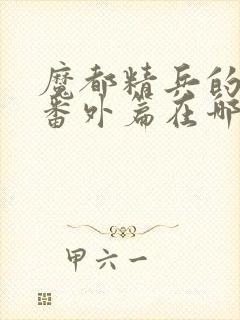 魔都精兵的
番外篇在哪
甲六一